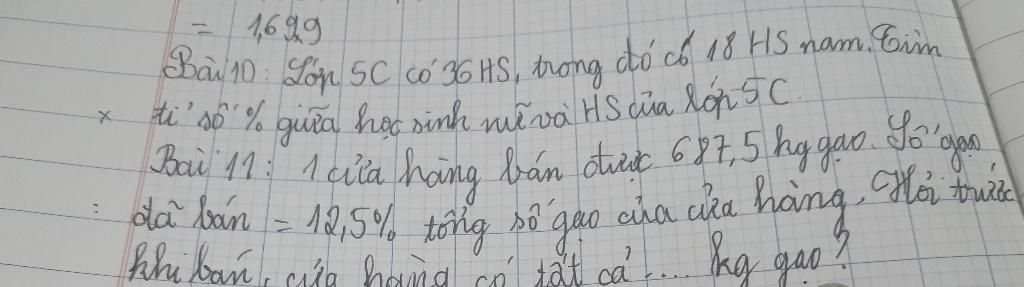 = 1,699
Bài 10: Lớp 5C có 36 HS, trong đó có 18 HS nam. Tìm
tỉ số % giữa học sinh nữ và HS của lớp 5C.
Bài 11: 1 cửa hàng bán được 687,5 kg gạo. Số gạo
đã bán = 12,5% tổng số gạo của cửa hàng. Hỏi trước
khi bán, cửa hàng có tất cả .... kg gạo?